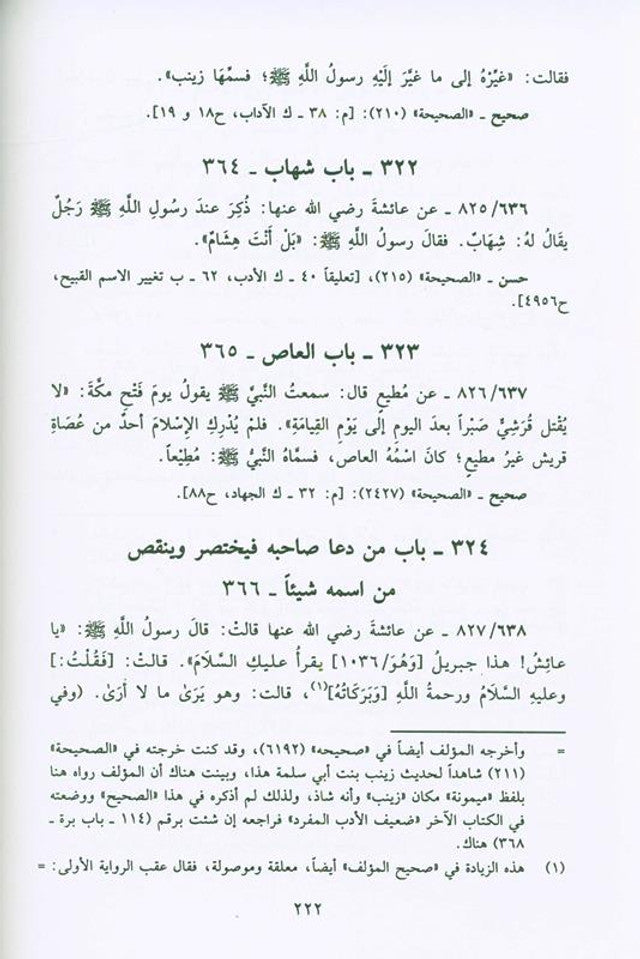 فقالت: «غيِّرْهُ إلى ما غيَّرَ إلَيْهِ رسولُ اللَّهِ ﷺ؛ فسمِّهَا زينب».
صحيح ـ «الصحيحة» (٢١٠): [م: ٣٨ ـ ك الآداب، ح١٨ و ١٩].
٣٢٢ ـ باب شهاب ـ ٣٦٤
٨٢٥/٦٣٦ ـ عن عائشةَ رضي الله عنها: ذُكِرَ عندَ رسُولِ اللَّهِ ﷺ رَجُلٌ
يقَالُ لهُ: شِهَابٌ. فقالَ رسولُ اللَّهِ ﷺ: «بَلْ أَنْتَ هِشَامٌ».
حسن ـ «الصحيحة» (٢١٥)، [تعليقاً ٤٠ ـ ك الأدب، ٦٢ ـ ب تغيير الاسم القبيح،
ح٤٩٥٦].
٣٢٣ ـ باب العاص ـ ٣٦٥
٨٢٦/٦٣٧ ـ عن مُطيعٍ قال: سمعتُ النَّبيَّ ﷺ يقولُ يومَ فَتْحِ مكَّةَ: «لا
يُقْتل قُرَشِيٌّ صَبْراً بعدَ اليومِ إلى يَوْمِ القِيامَةِ». فلمْ يُدْرِكِ الإسْلامَ أحدٌ من عُصَاةِ
قريش غيرُ مطيعٍ؛ كانَ اسْمُهُ العاص، فسمَّاهُ النَّبيُّ ﷺ: مُطِيْعاً.
صحيح ـ «الصحيحة» (٢٤٢٧): [م: ٣٢ ـ ك الجهاد، ح٨٨].
٣٢٤ ـ باب من دعا صاحبه فيختصر وينقص
من اسمه شيئاً ـ ٣٦٦
٨٢٧/٦٣٨ ـ عن عائشةَ رضي الله عنها قالتْ: قالَ رسولُ اللَّهِ ﷺ: «يا
عائِشُ! هذا جبريلُ [وَهُوَ/١٠٣٦] يقرأُ عليكِ السَّلامَ». قالتْ: [فَقُلْتُ:]
وعليهِ السَّلامُ ورحمةُ اللَّهِ [وَبَرَكَاتُهُ](١)، قالت: وهو يَرَىٰ ما لا أرَىٰ. (وفي
= وأخرجه المؤلف أيضاً في «صحيحه» (٦١٩٢)، وقد كنت خرجته في «الصحيحة»
(٢١١) شاهداً لحديث زينب بنت أبي سلمة هذا، وبينت هناك أن المؤلف رواه هنا
بلفظ «ميمونة» مكان «زينب» وأنه شاذ، ولذلك لم أذكره في هذا «الصحيح» ووضعته
في الكتاب الآخر «ضعيف الأدب المفرد» فراجعه إن شئت برقم (١١٤ ـ باب برة ـ
٣٦٨) هناك.
(١) هذه الزيادة في «صحيح المؤلف» أيضاً، معلقة وموصولة، فقال عقب الرواية الأولى: =
٢٢٢